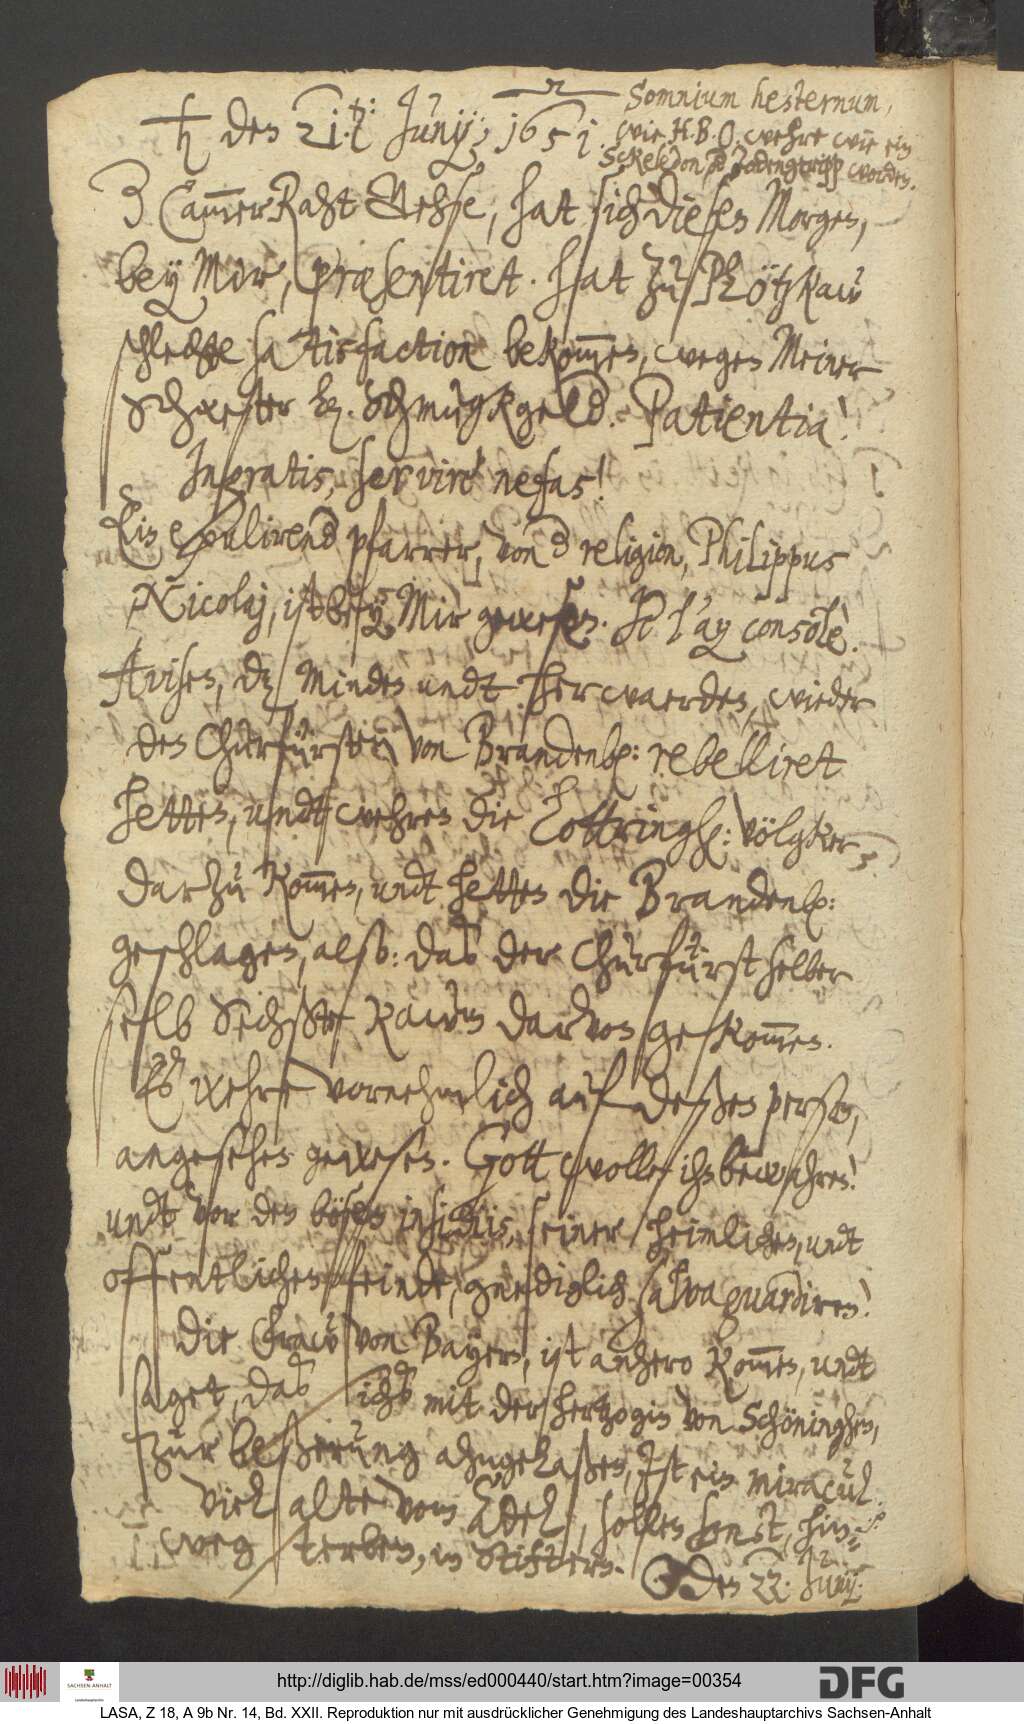 ♄ den 21. t: Junij; 1651.
Somnium hesternum,
wie H. B. O. wehre wie ein
Sckeledon, oder Todengeripp worden.
CammerRaht Mehse, hat sich diesen Morgen,
bey Mir, præsentiret. hat zu Plötzkaw
schlechte satisfaction bekommen, wegen Meiner
Schwester Schmugkgeld. Patientia!
Ingratis, servire nefas!
Ein exulirend pfarrer, von der religion, Philippus
Nicolaj, ist bey Mir gewesen. Je l'ay consolè.
Avisen, dz Minden undt Herwaerden, wieder
den Churfürsten von Brandenb: rebelliret
hetten, undt wehren die Lottringisch: völgker,
darzu kommen, undt hetten die Brandenb:
geschlagen, also: daß der Churfürst selber
selb Sechßte kaum darvon gekommen.
Es wehre vornehmlich auf deßen person,
angesehen gewesen. Gott wolle ihn bewahren!
undt vor den bösen insidiis, seiner heimlichen, undt
offentlichen feinde, gnediglich salvaguardiren!
Die Fraw von Bayern, ist anhero kommen, undt
saget, daß ichs mit der hertzogin von Schöninghen,
zur beßerung angelaßen, Ist ein miracul.
Viel alte vom Adel, sollen sonst, hin-
weg sterben, in Stiftern.
☉ den 22. Junij.
http://diglib.hab.de/mss/ed000440/start.htm?image=00354
DFG
SACHSEN-ANHALT
LASA, Z 18, A 9b Nr. 14, Bd. XXII. Reproduktion nur mit ausdrücklicher Genehmigung des Landeshauptarchivs Sachsen-Anhalt